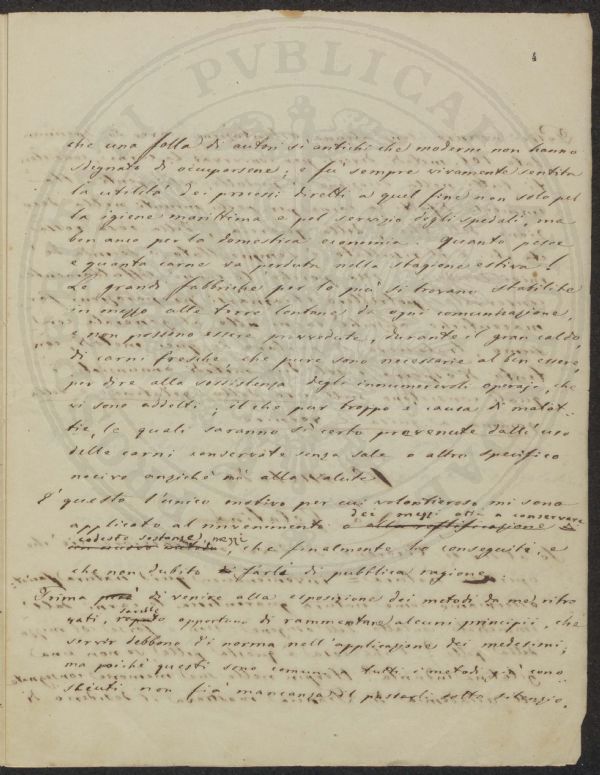 4
che una folla di autori sì antichi che moderni non hanno
sdegnato di occuparsene; e fù sempre vivamente sentita
la utilità dei processi diretti a quel fine non solo pel
la igiene marittima e pel servizio degli spedali, ma
ben anco per la domestica economia. Quanto pesce
e quanta carne va perduta nella stagione estiva!
Le grandi fabbriche per lo più si trovano stabilite
in mezzo alle terre lontane da ogni comunicazione,
e non possono essere provvedute, durante il gran caldo,
di carni fresche, che pure sono necessarie al ben essere,
per dire alla sussistenza degli innumerevoli operaj, che
vi sono addetti; il che pur troppo è causa di malat-
tie, le quali saranno di certo prevenute dall'uso
delle carni conservate senza sale o altro specifico
nocivo anzichè nò alla salute.
È questo l'unico motivo per cui volonteroso mi sono
dei mezzi atti a conservare
applicato al rinvenimento
codeste sostanze, mezzi
che finalmente ho conseguito, e
che non dubito di farle di pubblica ragione.
Prima di venire alla esposizione dei metodi da me ritro-
vati, sarebbe opportuno di rammentare alcuni principii, che
servir debbono di norma nell'applicazione dei medesimi;
ma poichè questi sono comuni a tutti i metodi già cono-
sciuti, non fia mancanza il passarli sotto silenzio.
PVBLICAE